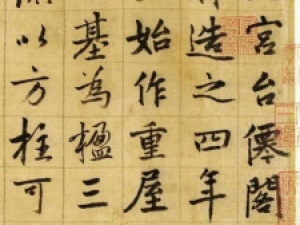 宮台僊閣
造之四年
始作重屋
基為楹三
以方柱可